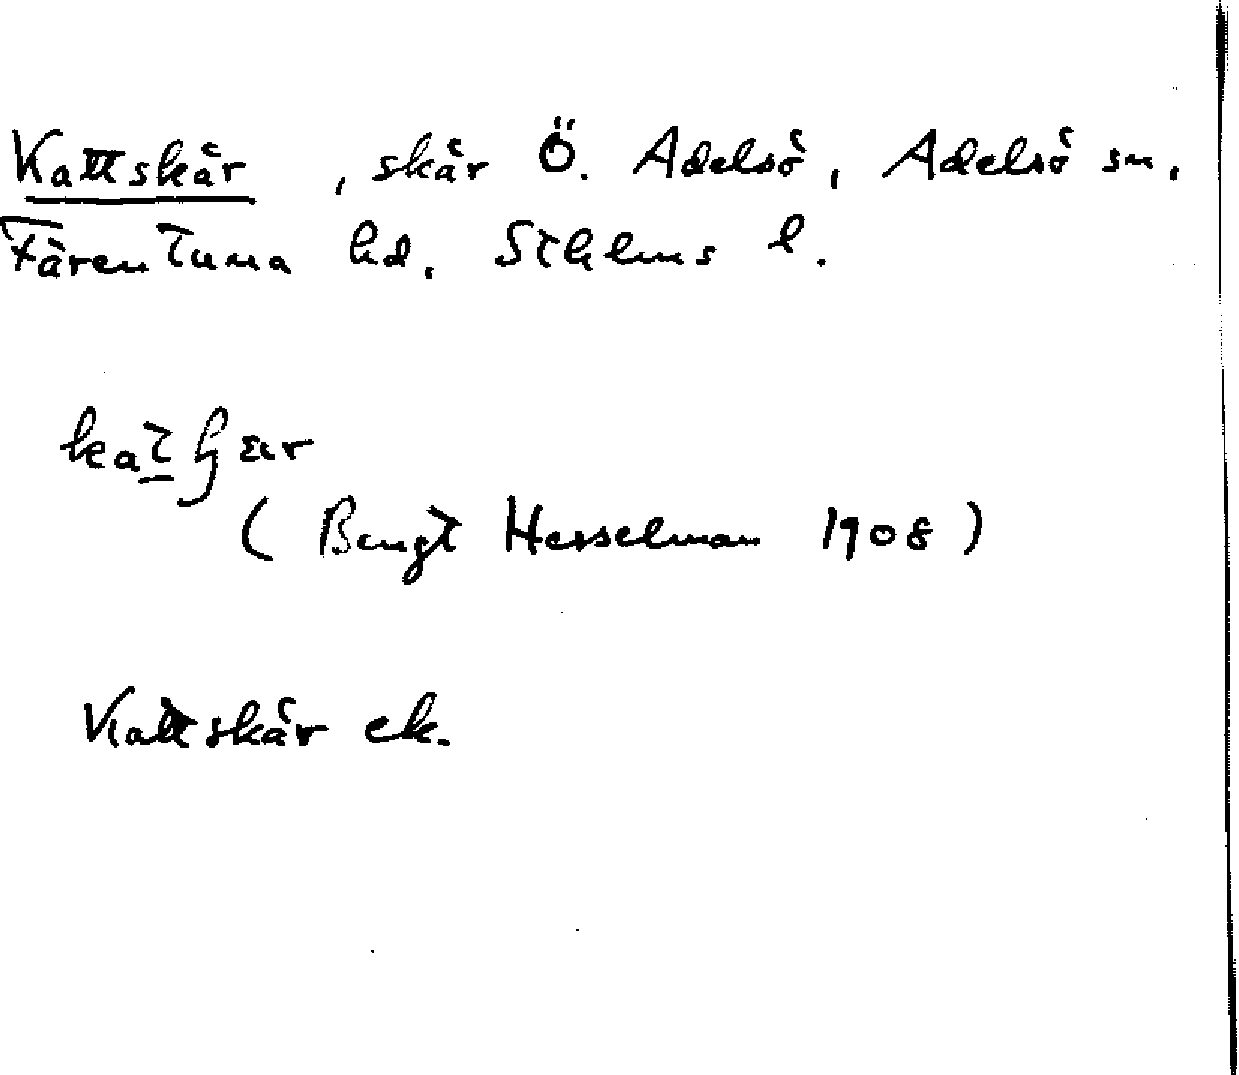 Kattskär, skär Ö. Adelsö, Adelsö sn,
Färentuna hd, Sthlms l.
(Bengt Hesselman 1908)
Kattskär ek.